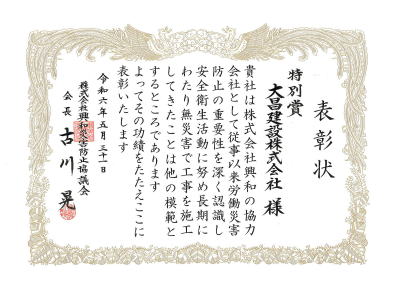 表彰状
特別賞
大昌建設株式会社 様
貴社は株式会社興和の協力
会社として従事以来労働災害
防止の重要性を深く認識し
安全衛生活動に努め長期に
わたり無災害で工事を施工
してきたことは他の模範と
するところであります
よってその功績をたたえここに
表彰いたします
令和六年五月三十一日
株式会社興和災害防止協議会
会長 古川 晃